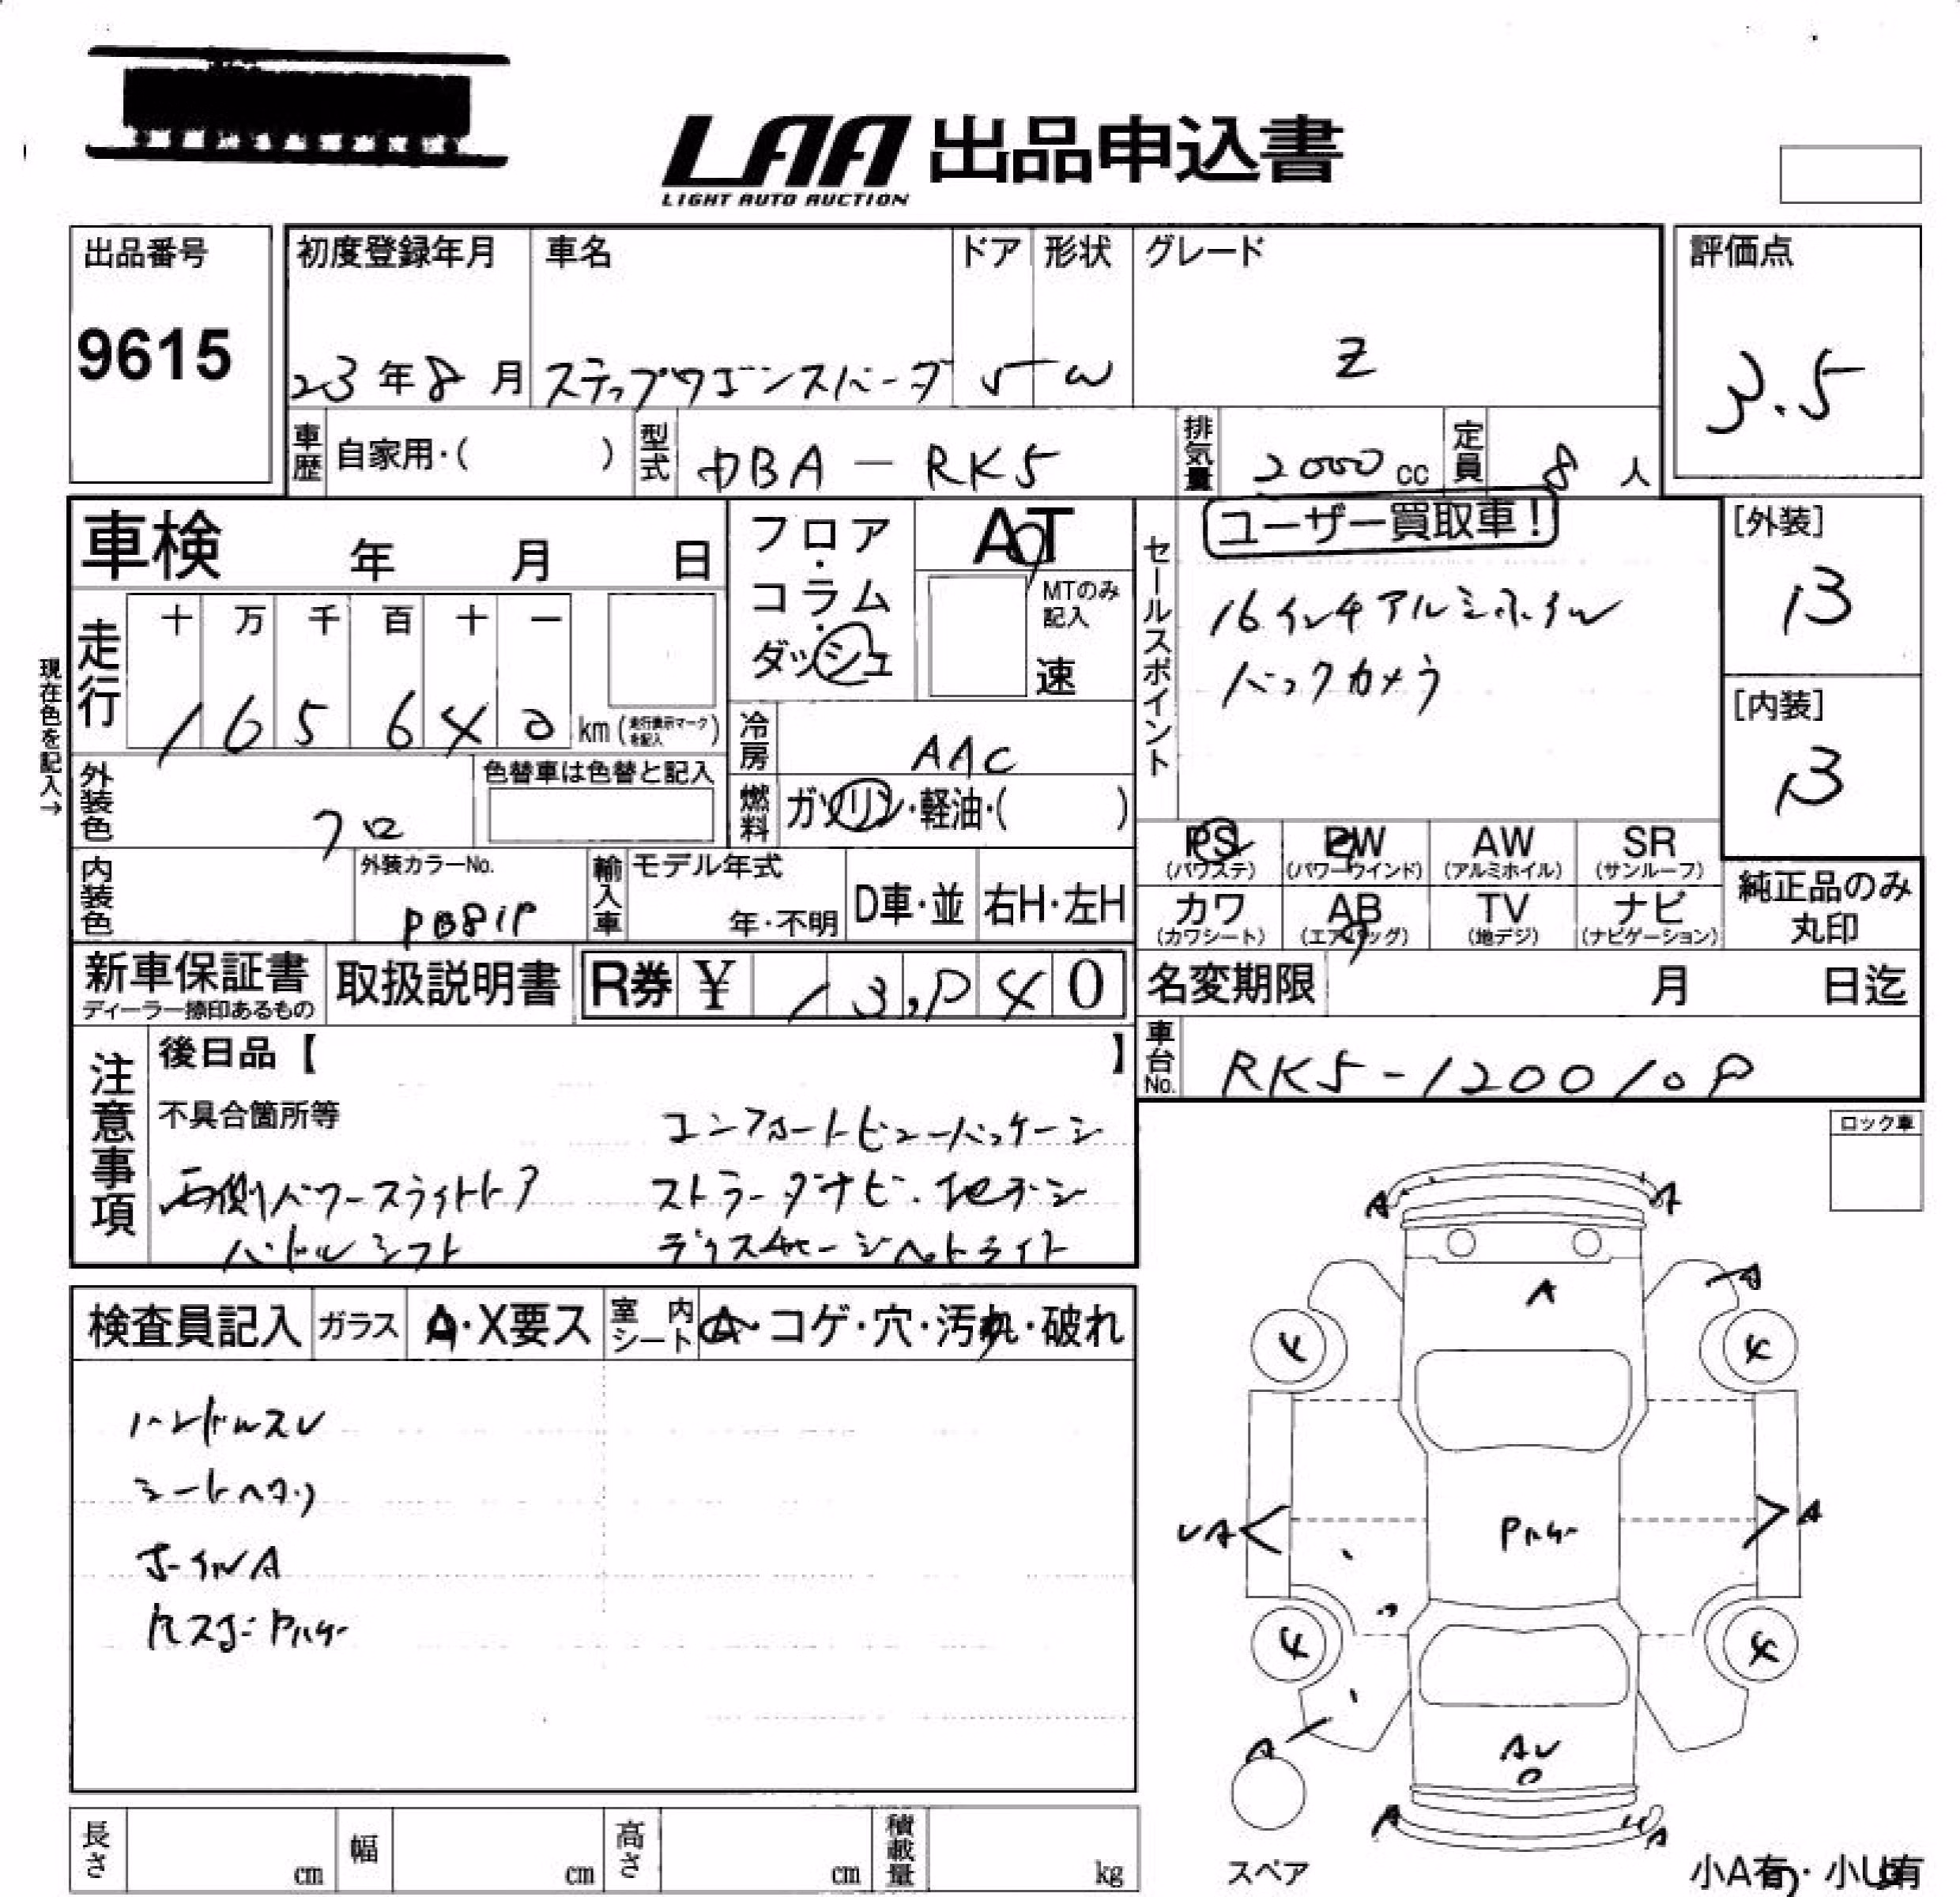 LAA 出品申込書
LIGHT AUTO AUCTION
出品番号
9615
初度登録年月
23年8月
車名
ステップワゴンスパーダ
ドア
5
形状
W
グレード
Z
評価点
3.5
車歴 自家用・( )
型式 DBA-RK5
排気量 2000cc
定員 8人
車検 年 月 日
フロア・コラム・ダッシュ
AT
MTのみ記入
速
セールスポイント
ユーザー買取車!
16インチアルミホイル
バックカメラ
[外装]
B
[内装]
B
現在色を記入→
走行
十 万 千 百 十 一
1 6 5 6 4 0 km (走行表示マークを記入)
冷房 AAC
燃料 ガソリン・軽油・( )
外装色 クロ
色替車は色替と記入
内装色
外装カラーNo.
輸入車 モデル年式
年・不明
D車・並 右H・左H
PS (パワステ)
PW (パワーウインド)
AW (アルミホイル)
SR (サンルーフ)
カワ (カワシート)
AB (エアバッグ)
TV (地デジ)
ナビ (ナビゲーション)
純正品のみ丸印
新車保証書
ディーラー捺印あるもの
取扱説明書
R券 ¥
名変期限 月 日迄
車台No.
注意事項
後日品【 】
不具合箇所等
コンフォートビューパッケージ
両側パワースライドドア
ストラーダナビ・地デジ
ハンドルシフト
ディスチャージヘッドライト
ロック車
検査員記入 ガラス A・X要ス 室内シート A・コゲ・穴・汚れ・破れ
ハンドルスレ
シートヘタリ
ホイルA
A A
A
A
4 4
UA A
4 4
A
AU
A A
スペア
小A有・小U有
長さ cm 幅 cm 高さ cm 積載量 kg